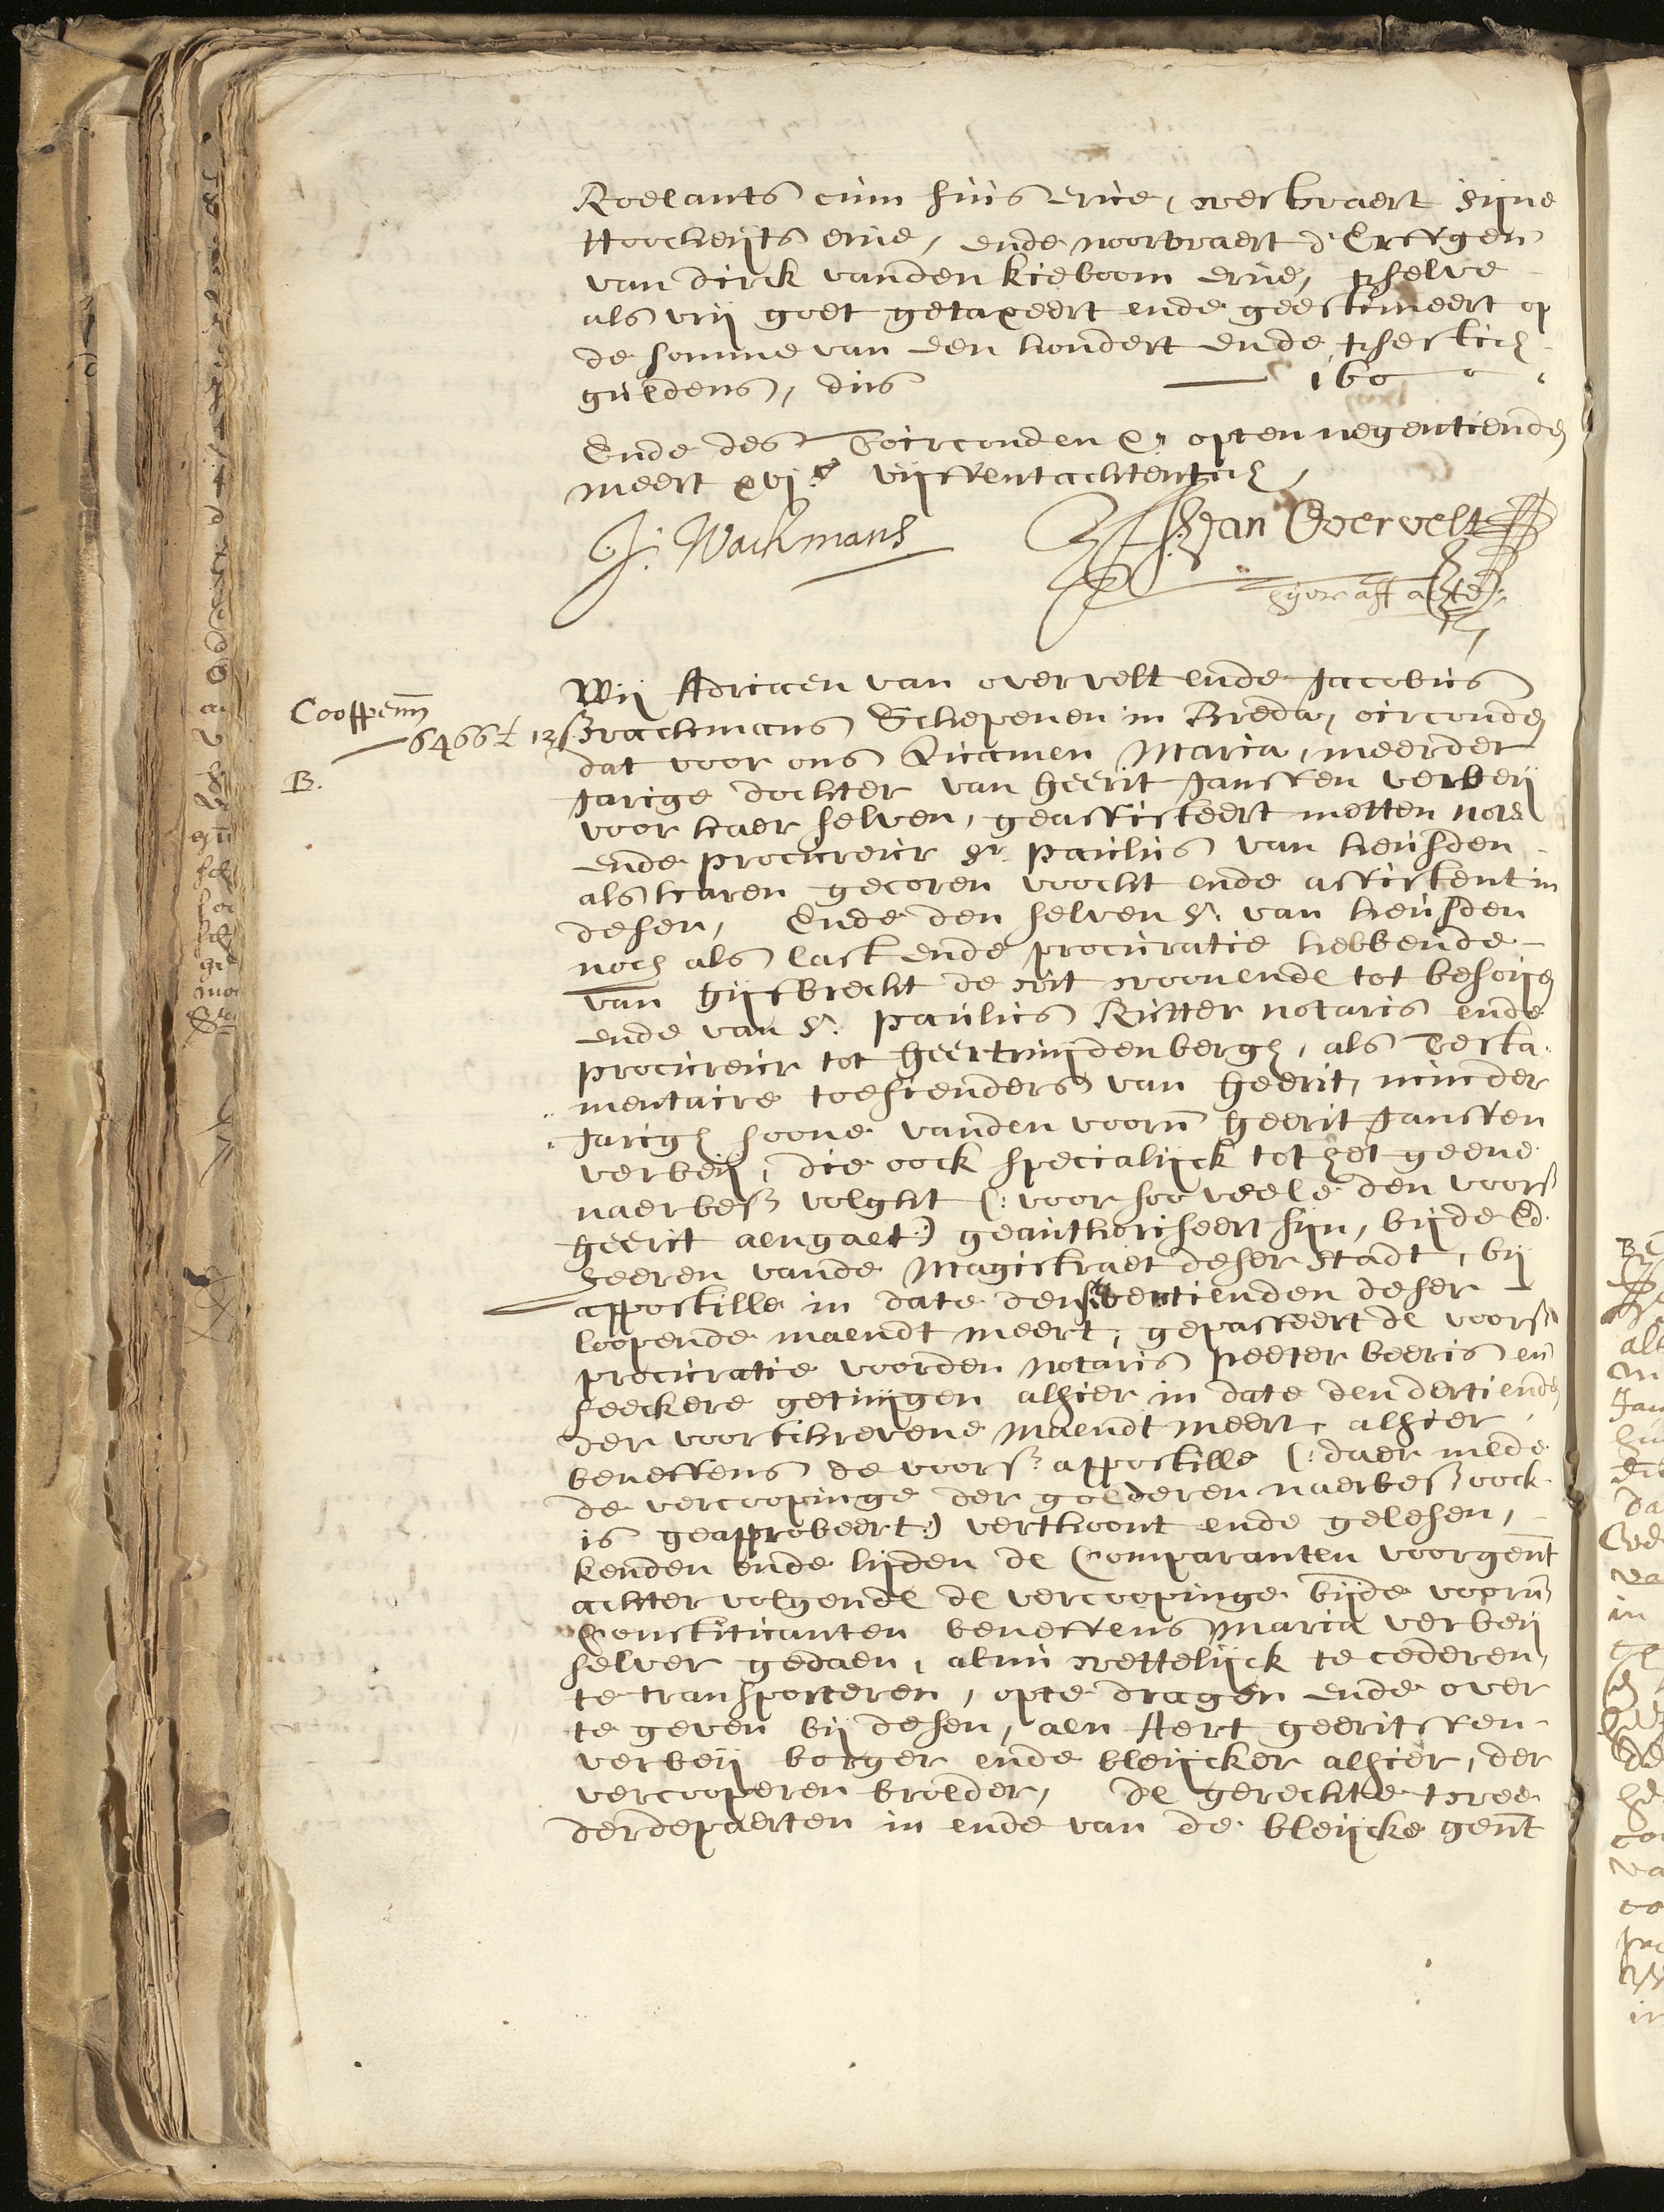 Roelants cum suis erve, westwaert sijne
Hoocheijts erve, ende noortwaert d'Erffgen
van dirck vanden kieboom erve, tselve
als vrij goet getaxeert ende geestimeert op
de somme van een hondert ende tsestich
guldens, dus 160
Ende des t'oirconden &a opten negentiende
meert xvjc vijffentachtentich,
J: Wachmans Jan Overvelt
hijer aff acte
Wij Adriaen van overvelt ende Jacobus
Coopenn
6466£ 13
B.
wachmans Schepenen in Breda, oirconde
dat voor ons quamen Maria, meerder
Jarige dochter van Geerit Janssen verbeij
voor haer selven, geassisteert metten nots
ende procureur Sr. Paulus van heusden
als haren gecoren voocht ende assistent in
desen, Ende den selven Sr. van heusden
noch als last ende procuratie hebbende
van Gijsbrecht de wit woonende tot besoije
ende van Sr. Paulus Rutter notaris ende
procureur tot Geertruijdenbergh, als Testa
mentaire toesienders van Geerit, minder
Jarigh soone vanden voorn Geerit Janssen
verbeij, die oock specialijck tot het geene
naerbes volght (: voor soo veele den voors
Geerit aengaet :) geauthoriseert sijn, bijde Ed.
heeren vande Magistraet deser stadt, bij
appostille in date den veertienden deser
loopende maendt meert, gepasseert de voors
procuratie voorden notaris Peeter beeris en
seeckere getuijgen alhier in date den dertiende
der voorschrevene maendt meert, alhier
beneffens de voors appostille (: daer mede
de vercoopinge der goederen naerbes oock
is geapprobeert :) verthoont ende gelesen,
kenden ende lijden de Comparanten voorgent
achter volgende de vercoopinge bijde voorn
Constituanten beneffens Maria verbeij
selver gedaen, alnu wettelijck te cederen,
te transporteren, opte dragen ende over
te geven bij desen, aen Aert geeritssen
verbeij borger ende bleijcker alhier, der
vercooperen broeder, de gerechte twee
derdepaerten in ende van de bleijcke gent